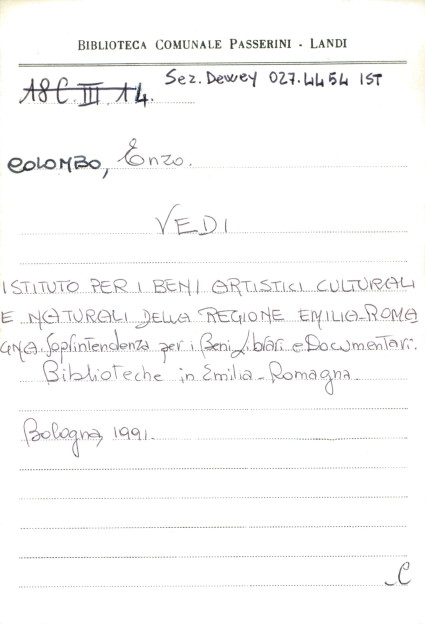 BIBLIOTECA COMUNALE PASSERINI - LANDI
18C. III. 14. Sez. Dewey 027.4454 IST
COLOMBO, Enzo.
VEDI
ISTITUTO PER I BENI ARTISTICI CULTURALI
E NATURALI DELLA REGIONE EMILIA-ROMA
GNA. Soprintendenza per i Beni Librari e Documentari.
Biblioteche in Emilia-Romagna.
Bologna, 1991.
C